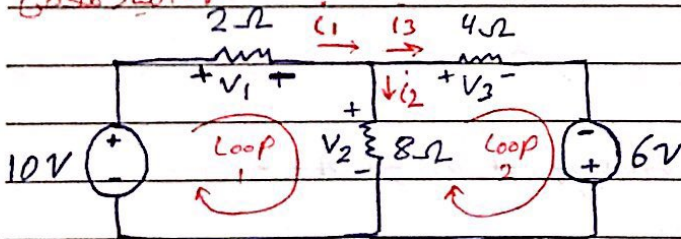 2Ω i1 i3 4Ω
+ V1 + i2 + V3 -
+ +
10V Loop 1 V2 8Ω Loop 2 - 6V
- - +